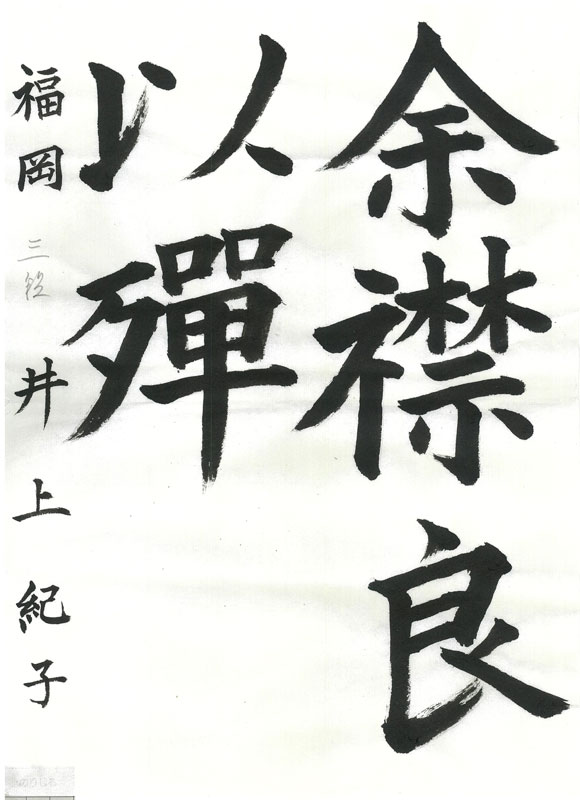 余襟良
以殫
福岡 三段 井上紀子